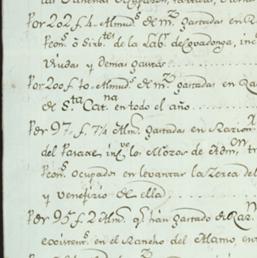 Por 202 f. 4 Almud.s de m.z gastadas en R
Peon.s ó Sirb.tes de la Lab.r de Covadonga, in
Viudas y Demas gastos
Por 200 f. 10 Almud.s de m.z gastadas en Ra
de S.ta Cat.na en todo el año
Por 97 f. 7¼ Alm.s gastadas en Racion
del Parage, los Mozos de Adm.on
Peon.s ocupados en levantar la Zerca del
y venefisio de ella
Por 95 f. 2 Alm.s q.e han gastado de Rac.n
existen.s en el Rancho del Alamo, en